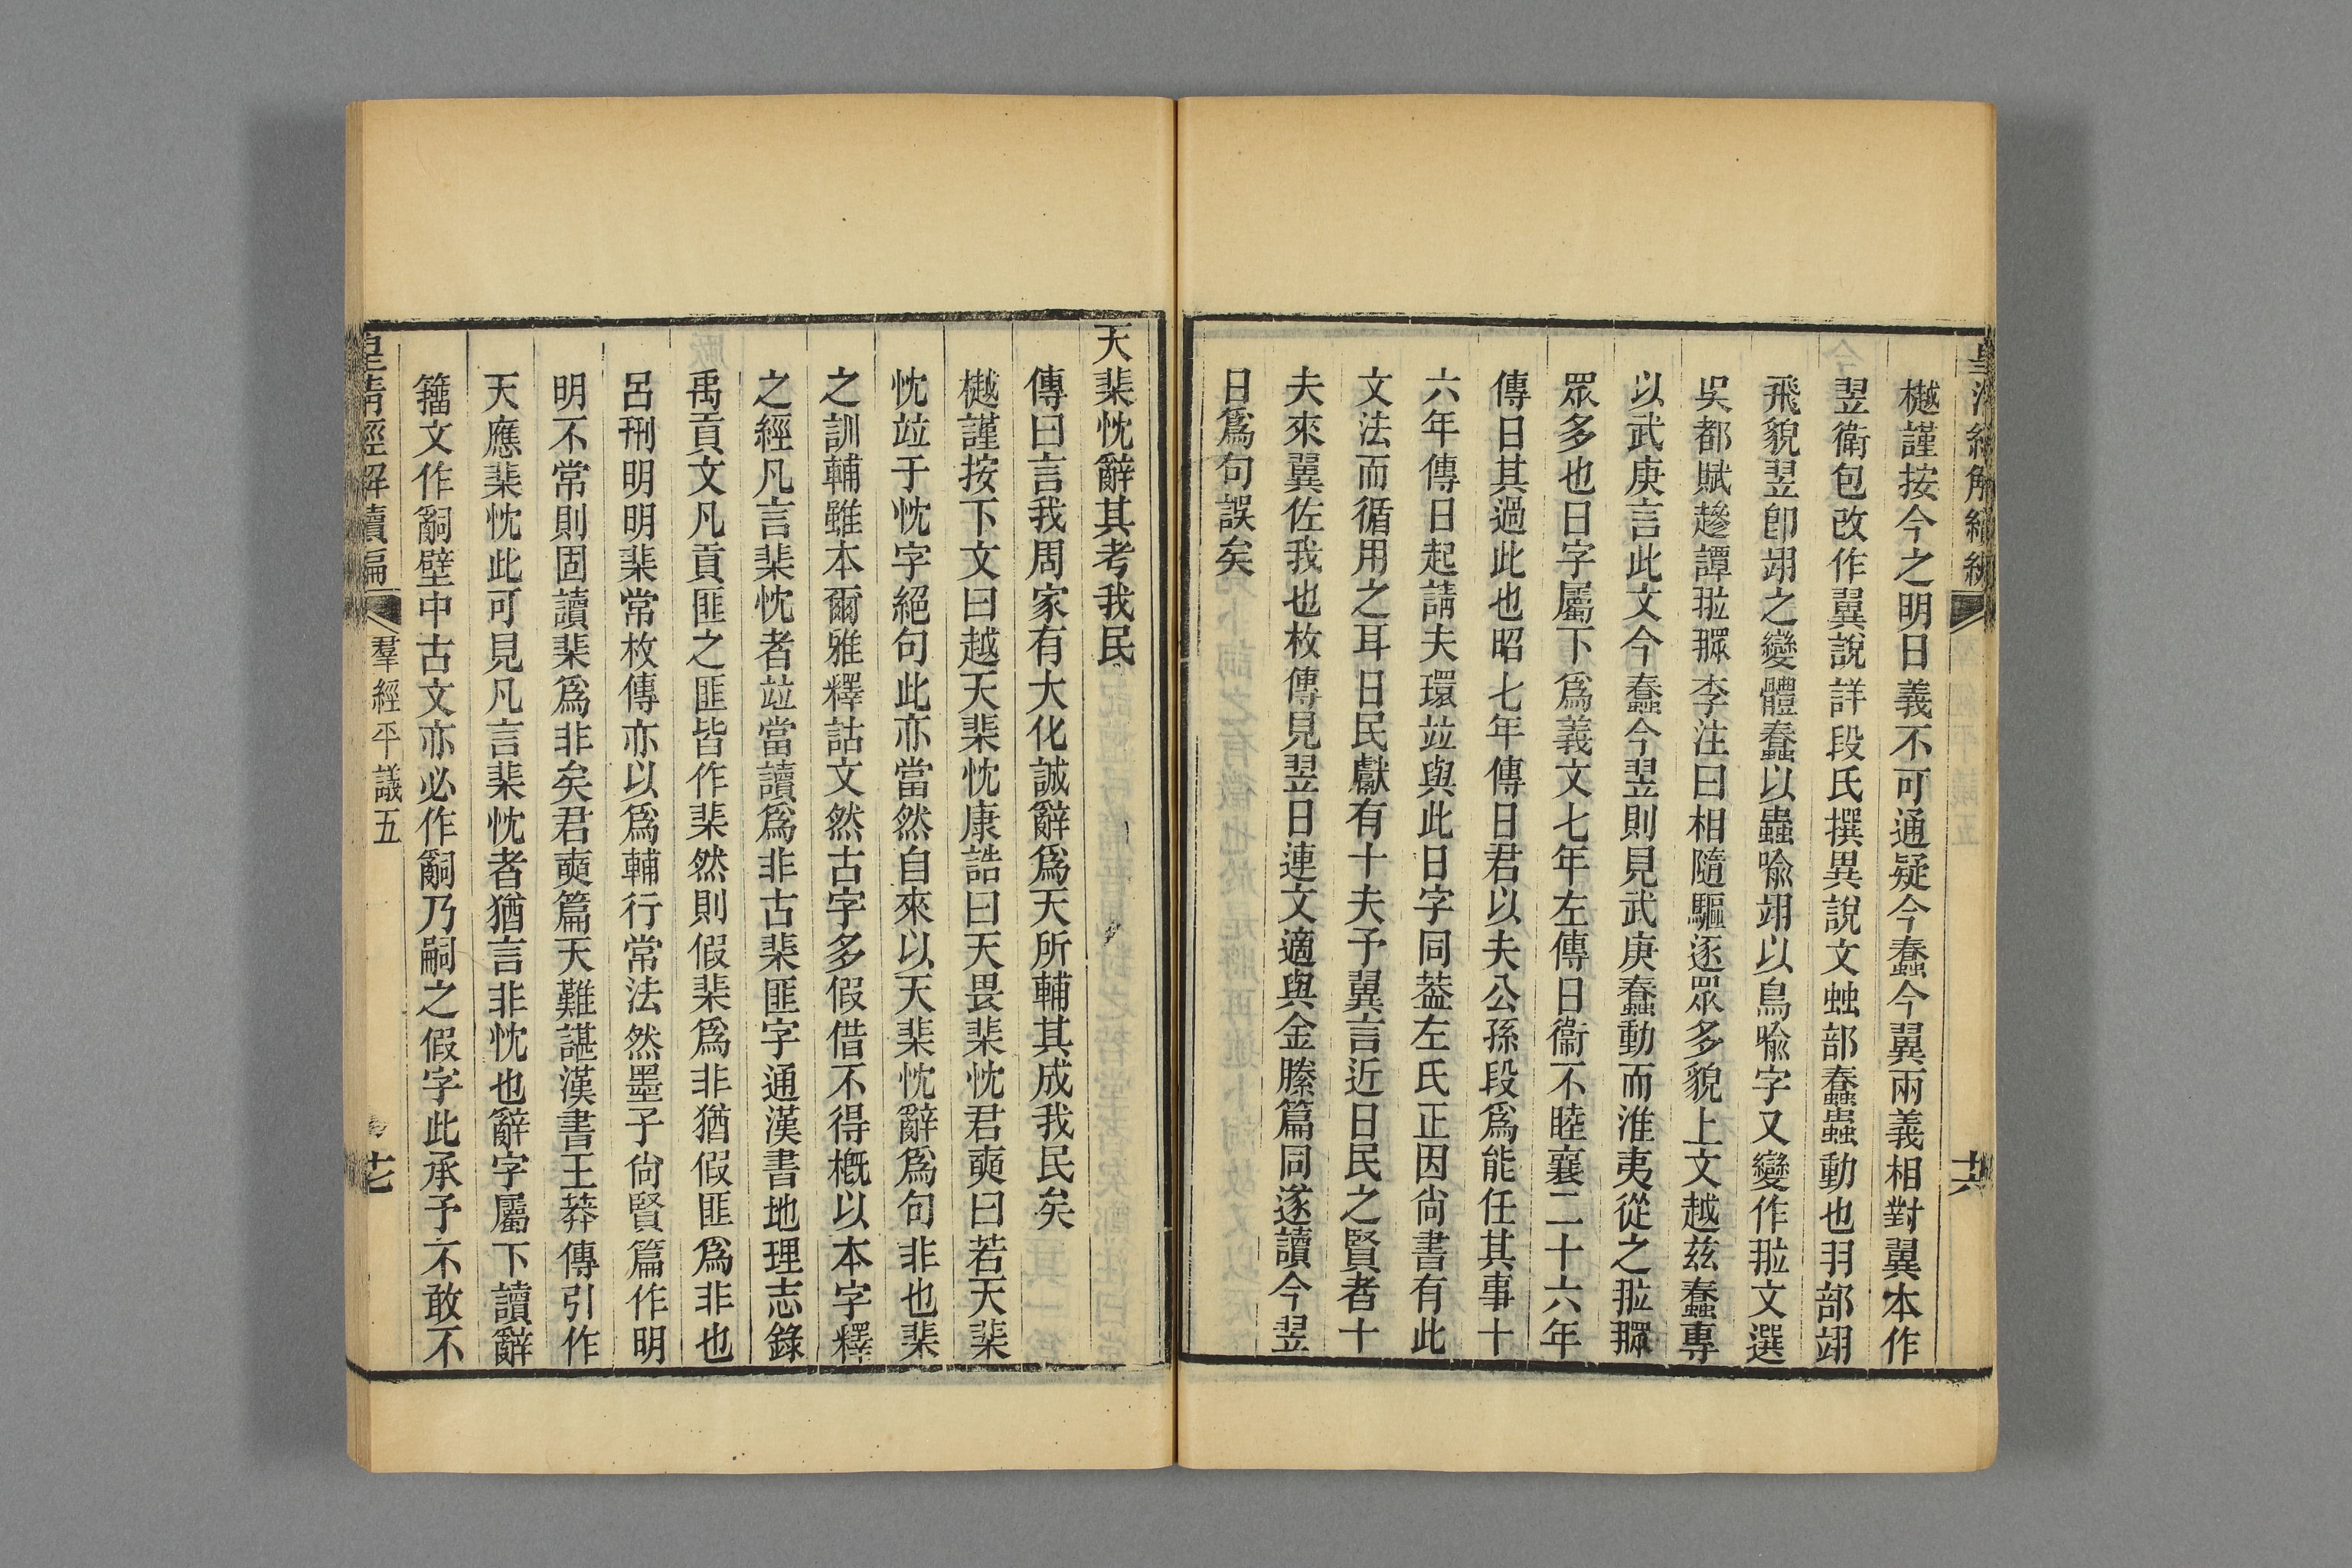 樾謹按今之明日義不可通疑今蠢今翼兩義相對翼本作
翌衛包改作翼說詳段氏撰異說文䖵部蠢蟲動也羽部翊
飛貌翌卽翊之變體蠢以蟲喻翊以鳥喻字又變作𦐂文選
吳都賦趁譚𦐂獿李注曰相隨驅逐眾多貌上文越茲蠢專
以武庚言此文今蠢今翌則見武庚蠢動而淮夷從之𦐂獿
眾多也日字屬下爲義文七年左傳日衞不睦襄二十六年
傳日其過此也昭七年傳日君以夫公孫段爲能任其事十
六年傳日起請夫環竝與此日字同葢左氏正因尙書有此
文法而循用之耳日民獻有十夫予翼言近日民之賢者十
夫來翼佐我也枚傳見翌日連文適與金縢篇同遂讀今翌
日爲句誤矣
天棐忱辭其考我民
傳曰言我周家有大化誠辭爲天所輔其成我民矣
樾謹按下文曰越天棐忱康誥曰天畏棐忱君奭曰若天棐
忱竝于忱字絕句此亦當然自來以天棐忱辭爲句非也棐
之訓輔雖本爾雅釋詁文然古字多假借不得槪以本字釋
之經凡言棐忱者竝當讀爲非古棐匪字通漢書地理志錄
禹貢文凡貢匪之匪皆作棐然則假棐爲非猶假匪爲非也
呂刑明明棐常枚傳亦以爲輔行常法然墨子尙賢篇作明
明不常則固讀棐爲非矣君奭篇天難諶漢書王莽傳引作
天應棐忱此可見凡言棐忱者猶言非忱也辭字屬下讀辭
籒文作嗣壁中古文亦必作嗣乃嗣之假字此承予不敢不
皇淸經解續編
羣經平議五